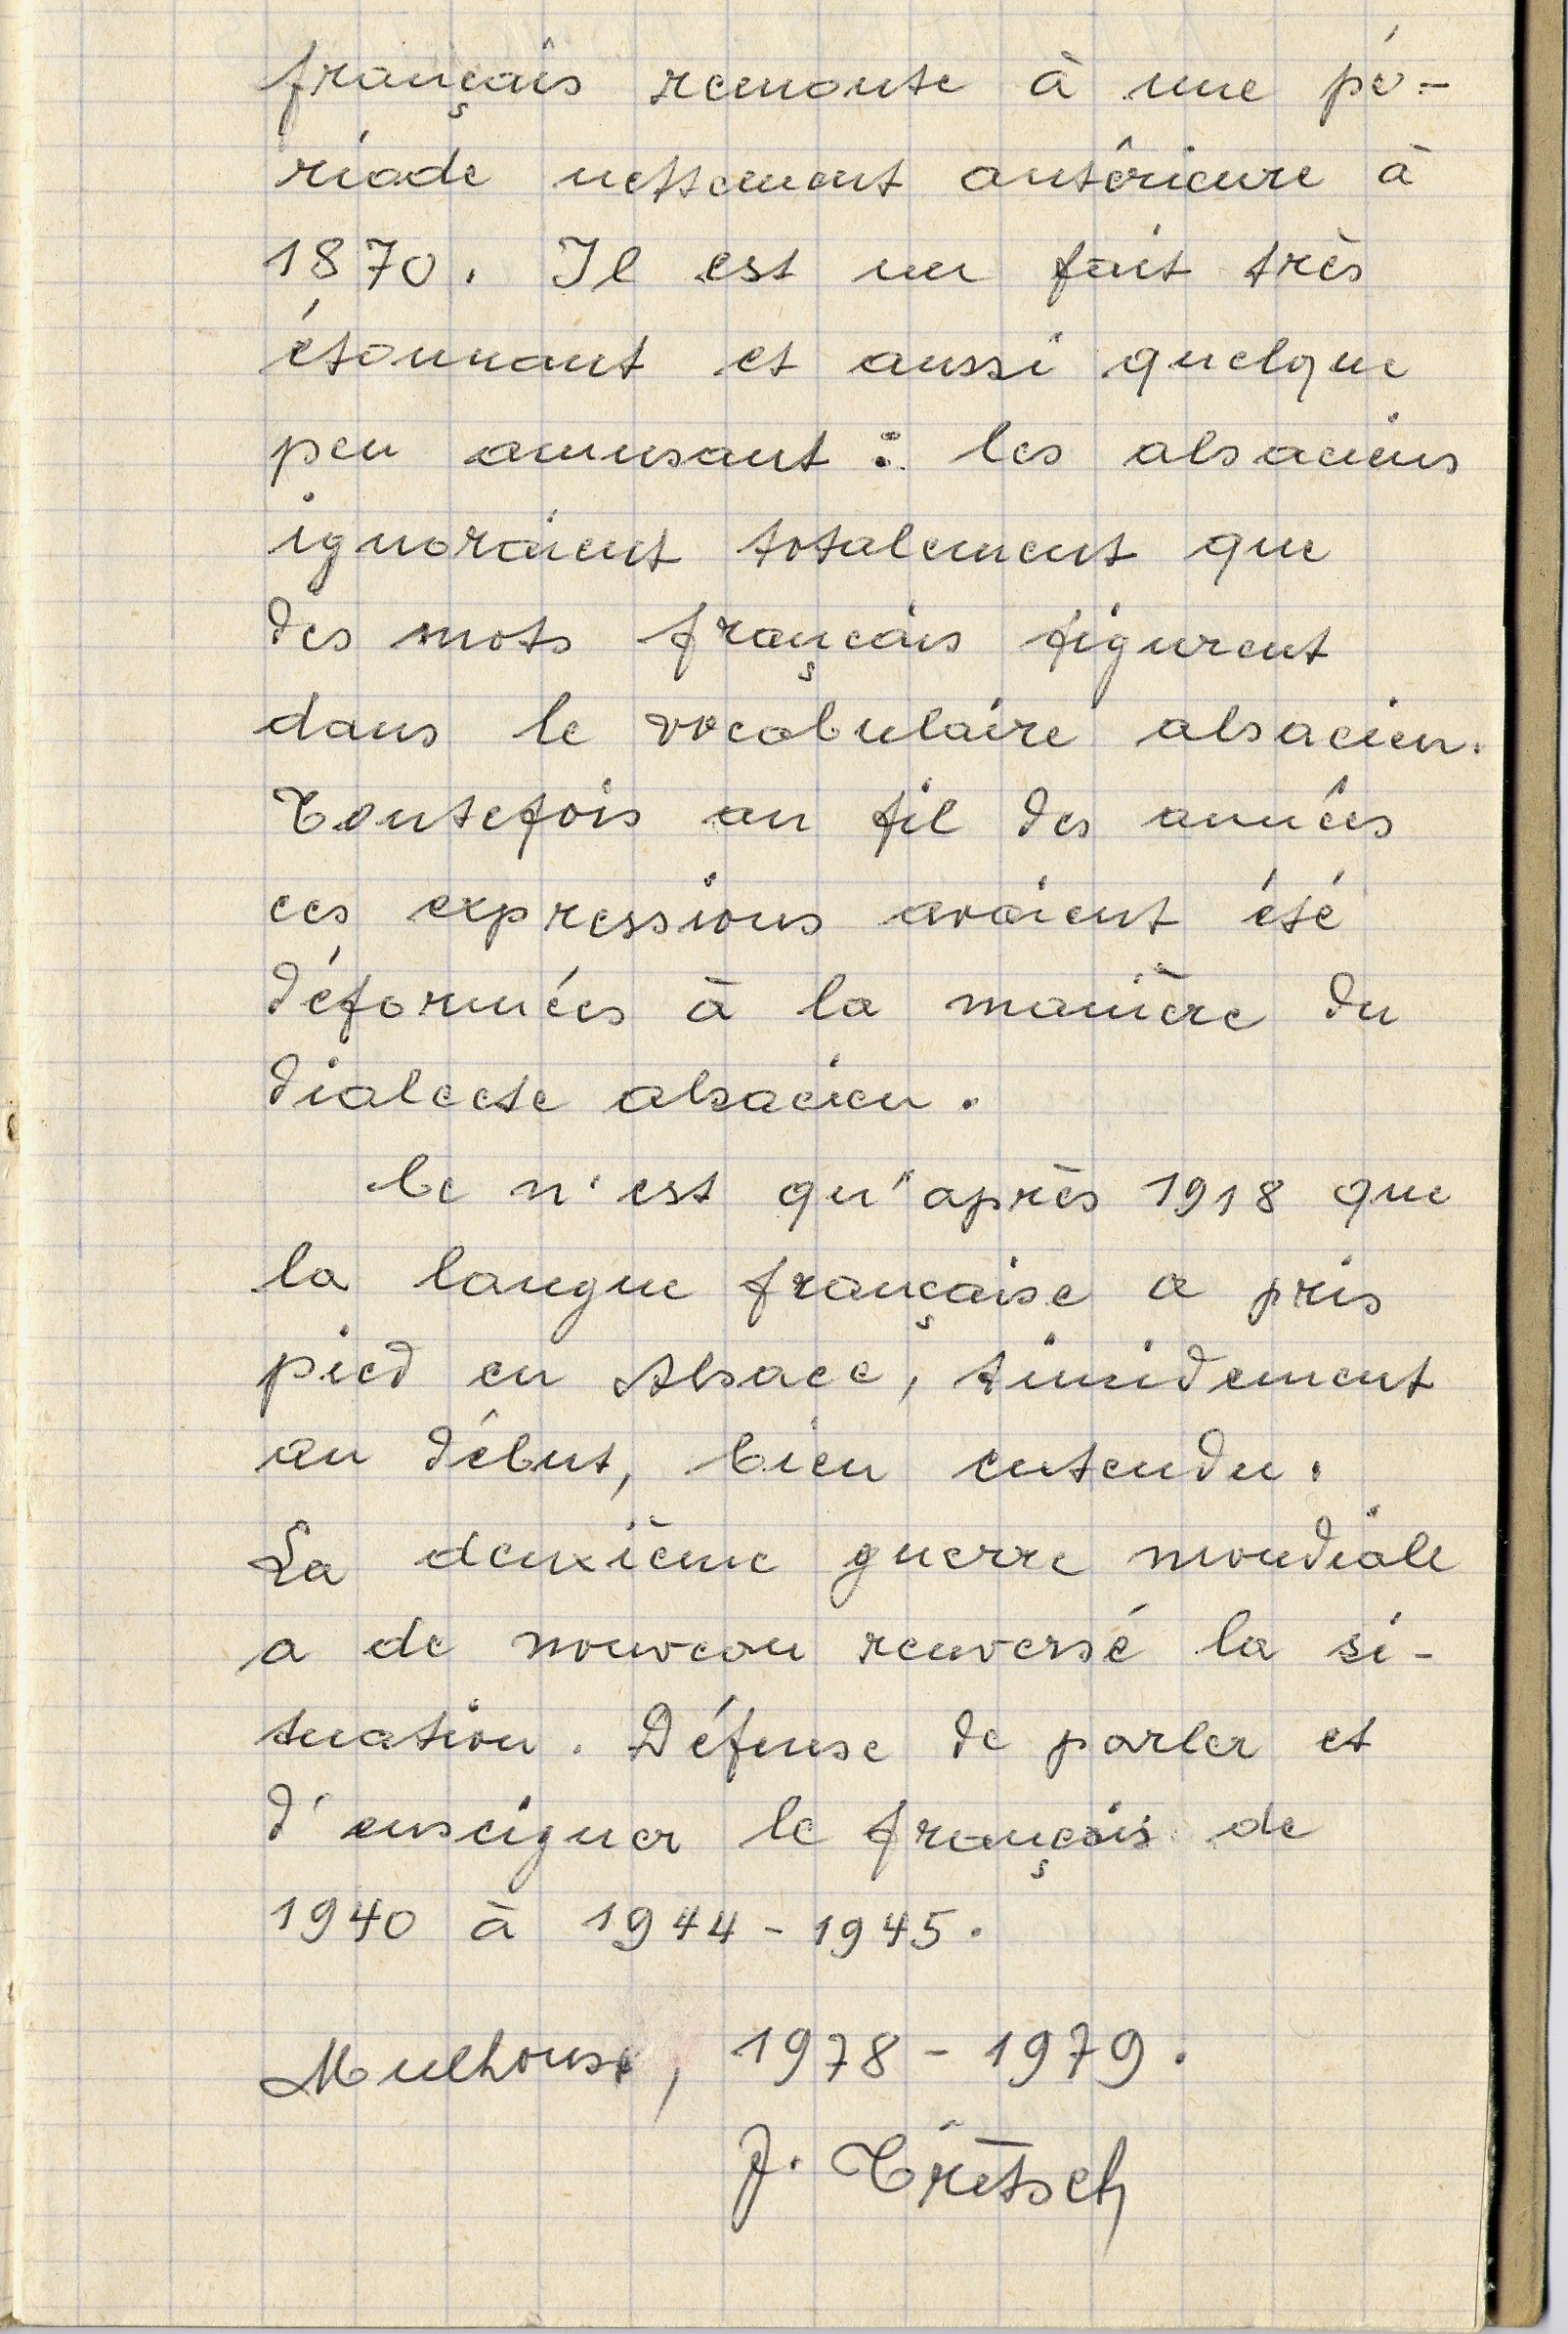 français remonte à une pé-
riode nettement antérieure à
1870. Il est un fait très
étonnant et aussi quelque
peu amusant : les alsaciens
ignoraient totalement que
des mots français figurent
dans le vocabulaire alsacien.
Toutefois au fil des années
ces expressions avaient été
déformées à la manière du
dialecte alsacien.
Ce n'est qu'après 1918 que
la langue française a pris
pied en Alsace, timidement
au début, bien entendu.
La deuxième guerre mondiale
a de nouveau renversé la si-
tuation. Défense de parler et
d'enseigner le français de
1940 à 1944-1945.
Mulhouse, 1978-1979.
J. Trëtsch